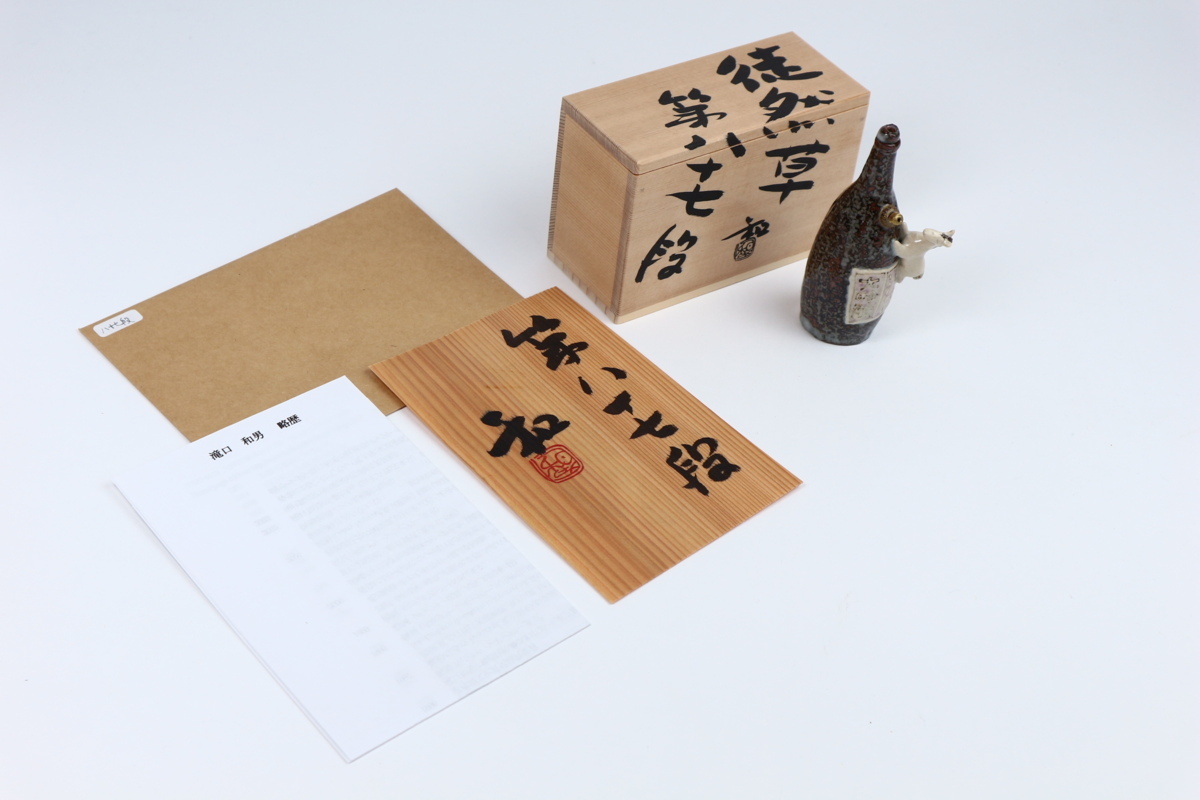 徒然草
第八十七段
和
第八十七段
和
八十七段
滝口 和男 略歴